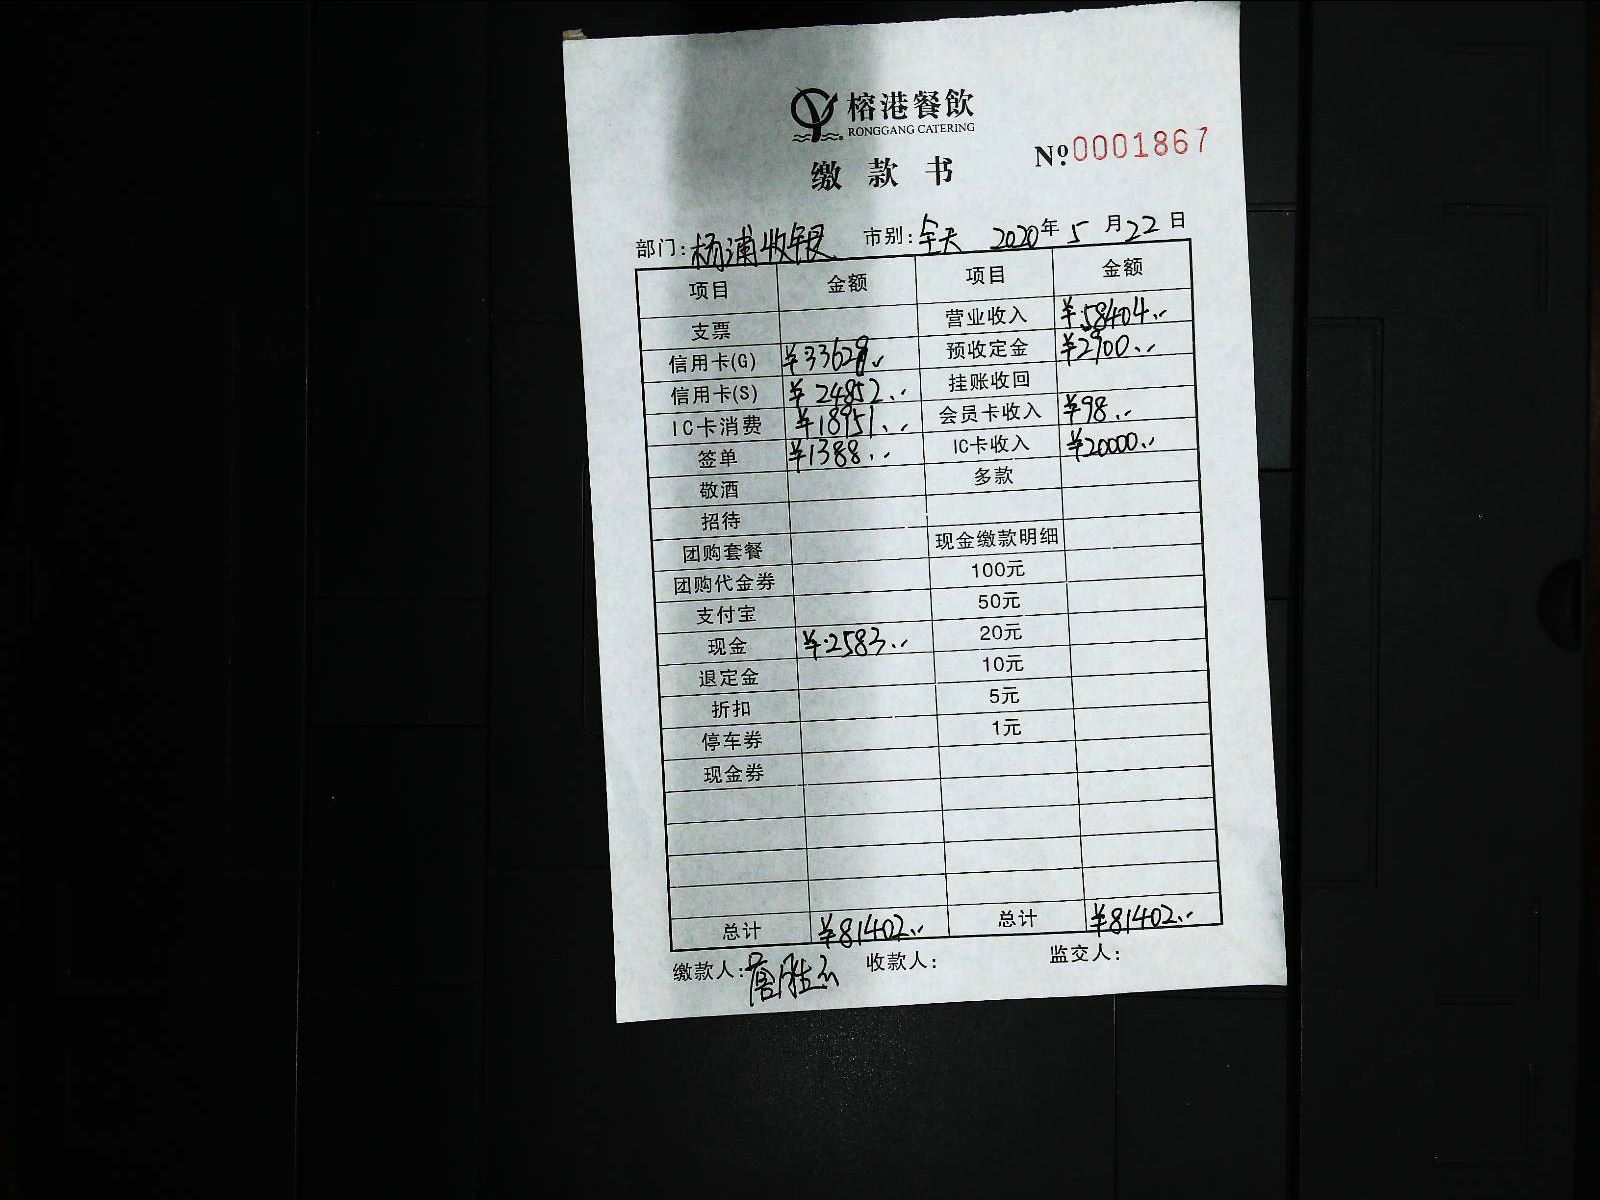 榕港餐飲
RONGGANG CATERING
缴款书
Nº:0001867
部门:杨浦收银 市别:全天 2020年5月22日
项目 金额 项目 金额
支票 营业收入 ¥58404.--
信用卡(G) ¥33628.- 预收定金 ¥2900.--
信用卡(S) ¥24852.-- 挂账收回
IC卡消费 ¥18951.-- 会员卡收入 ¥98.--
签单 ¥1388.-- IC卡收入 ¥20000.--
敬酒 多款
招待
团购套餐 现金缴款明细
团购代金券 100元
支付宝 50元
现金 ¥2583.-- 20元
退定金 10元
折扣 5元
停车券 1元
现金券
总计 ¥81402.-- 总计 ¥81402.--
缴款人: 收款人: 监交人: